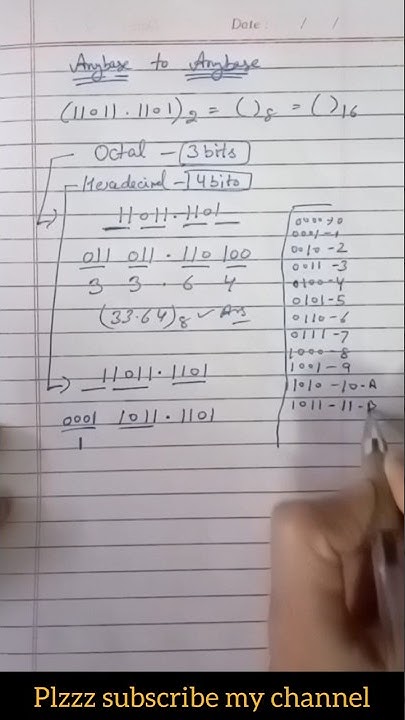 Date : / /
Anybase to Anybase
(11011.1101)2 = ( )8 = ( )16
Octal - 3 bits
Hexadecimal - 4 bits
11011.1101
011 011 . 110 100
3 3 . 6 4
(33.64)8 ✓ Ans
11011.1101
0001 1011 . 1101
1
0000-0
0001-1
0010-2
0011-3
0100-4
0101-5
0110-6
0111-7
1000-8
1001-9
1010-10-A
1011-11-B
Plzzz subscribe my channel